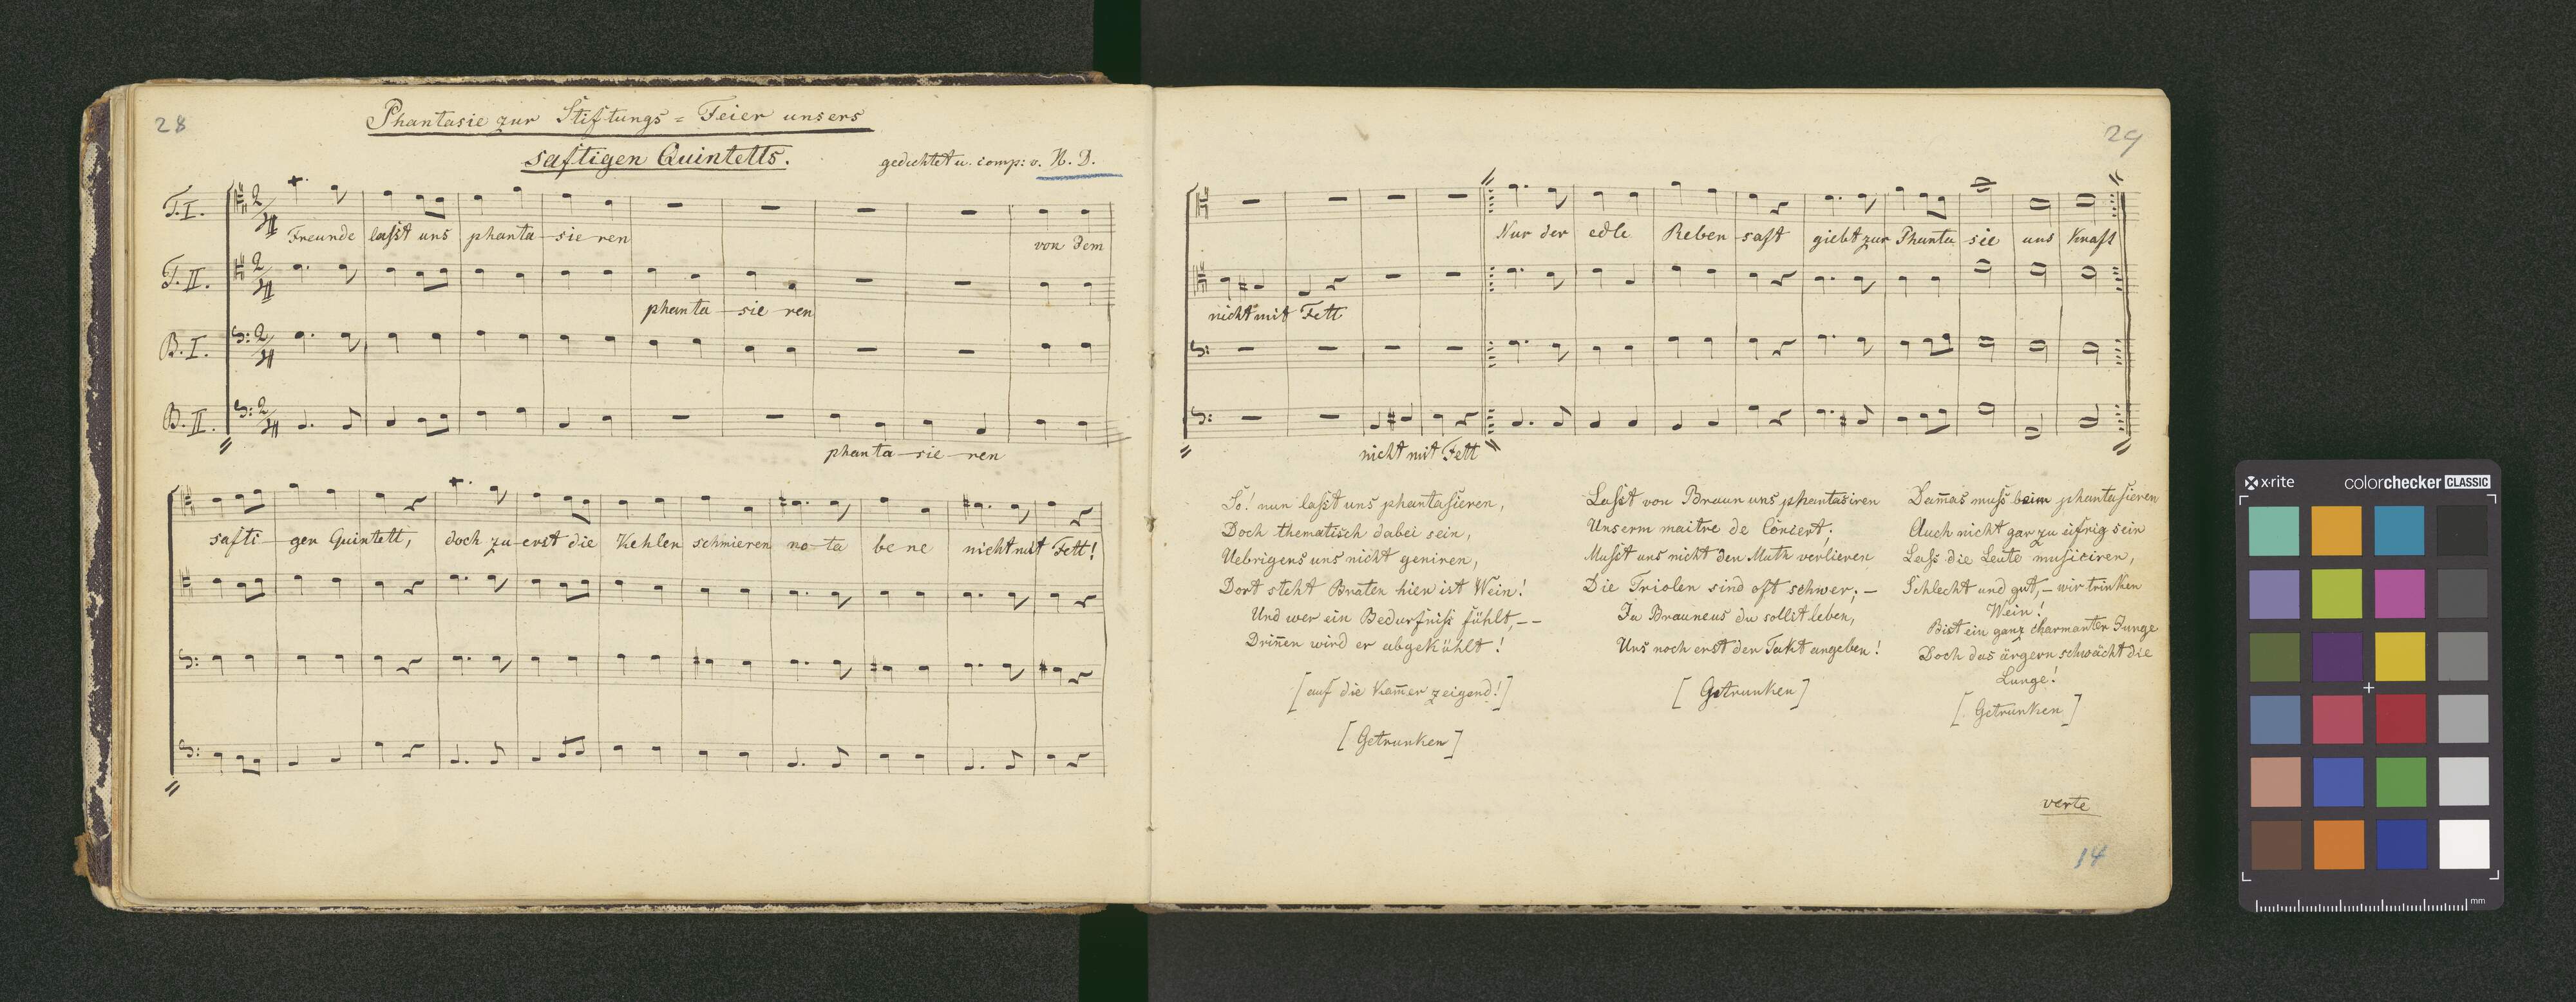 28
Phantasie zur Stiftungs = Feier unsers
saftigen Quintetts.
gedichtet u. comp: v. N. D.
T. I.
Freunde lasst uns phanta - sie ren
von dem
T. II.
phanta - sie ren
B. I.
B. II.
phanta - sie - ren
safti - gen Quintett, doch zu - erst die Kehlen schmieren no - ta be ne nicht mit Fett!
29
Nur der edle Reben - saft giebt zur Phanta sie uns Kraft
nicht mit Fett
nicht mit Fett
So! nun lasst uns phantasieren,
Doch thematisch dabei sein,
Uebrigens uns nicht geniren,
Dort steht Braten hier ist Wein!
Und wer ein Bedurfniss fühlt, - -
Drin̄en wird er abgekühlt!
[auf die Kam̄er zeigend!]
[Getrunken]
Lasst von Braun uns phantasiren
Unserm maitre de Concert;
Musst uns nicht den Muth verlieren
Die Triolen sind oft schwer; -
Ja Brauneus du sollst leben,
Uns noch erst den Takt angeben!
[Getrunken]
Dam̄as muss beim phantasieren
Auch nicht gar zu eifrig sein
Lass die Leute musiciren,
Schlecht und gut, - wir trinken
Wein!
Bist ein ganz charmanter Junge
Doch das ärgern schwächt die
Lunge!
[Getrunken]
verte
14
x-rite
colorchecker CLASSIC
mm